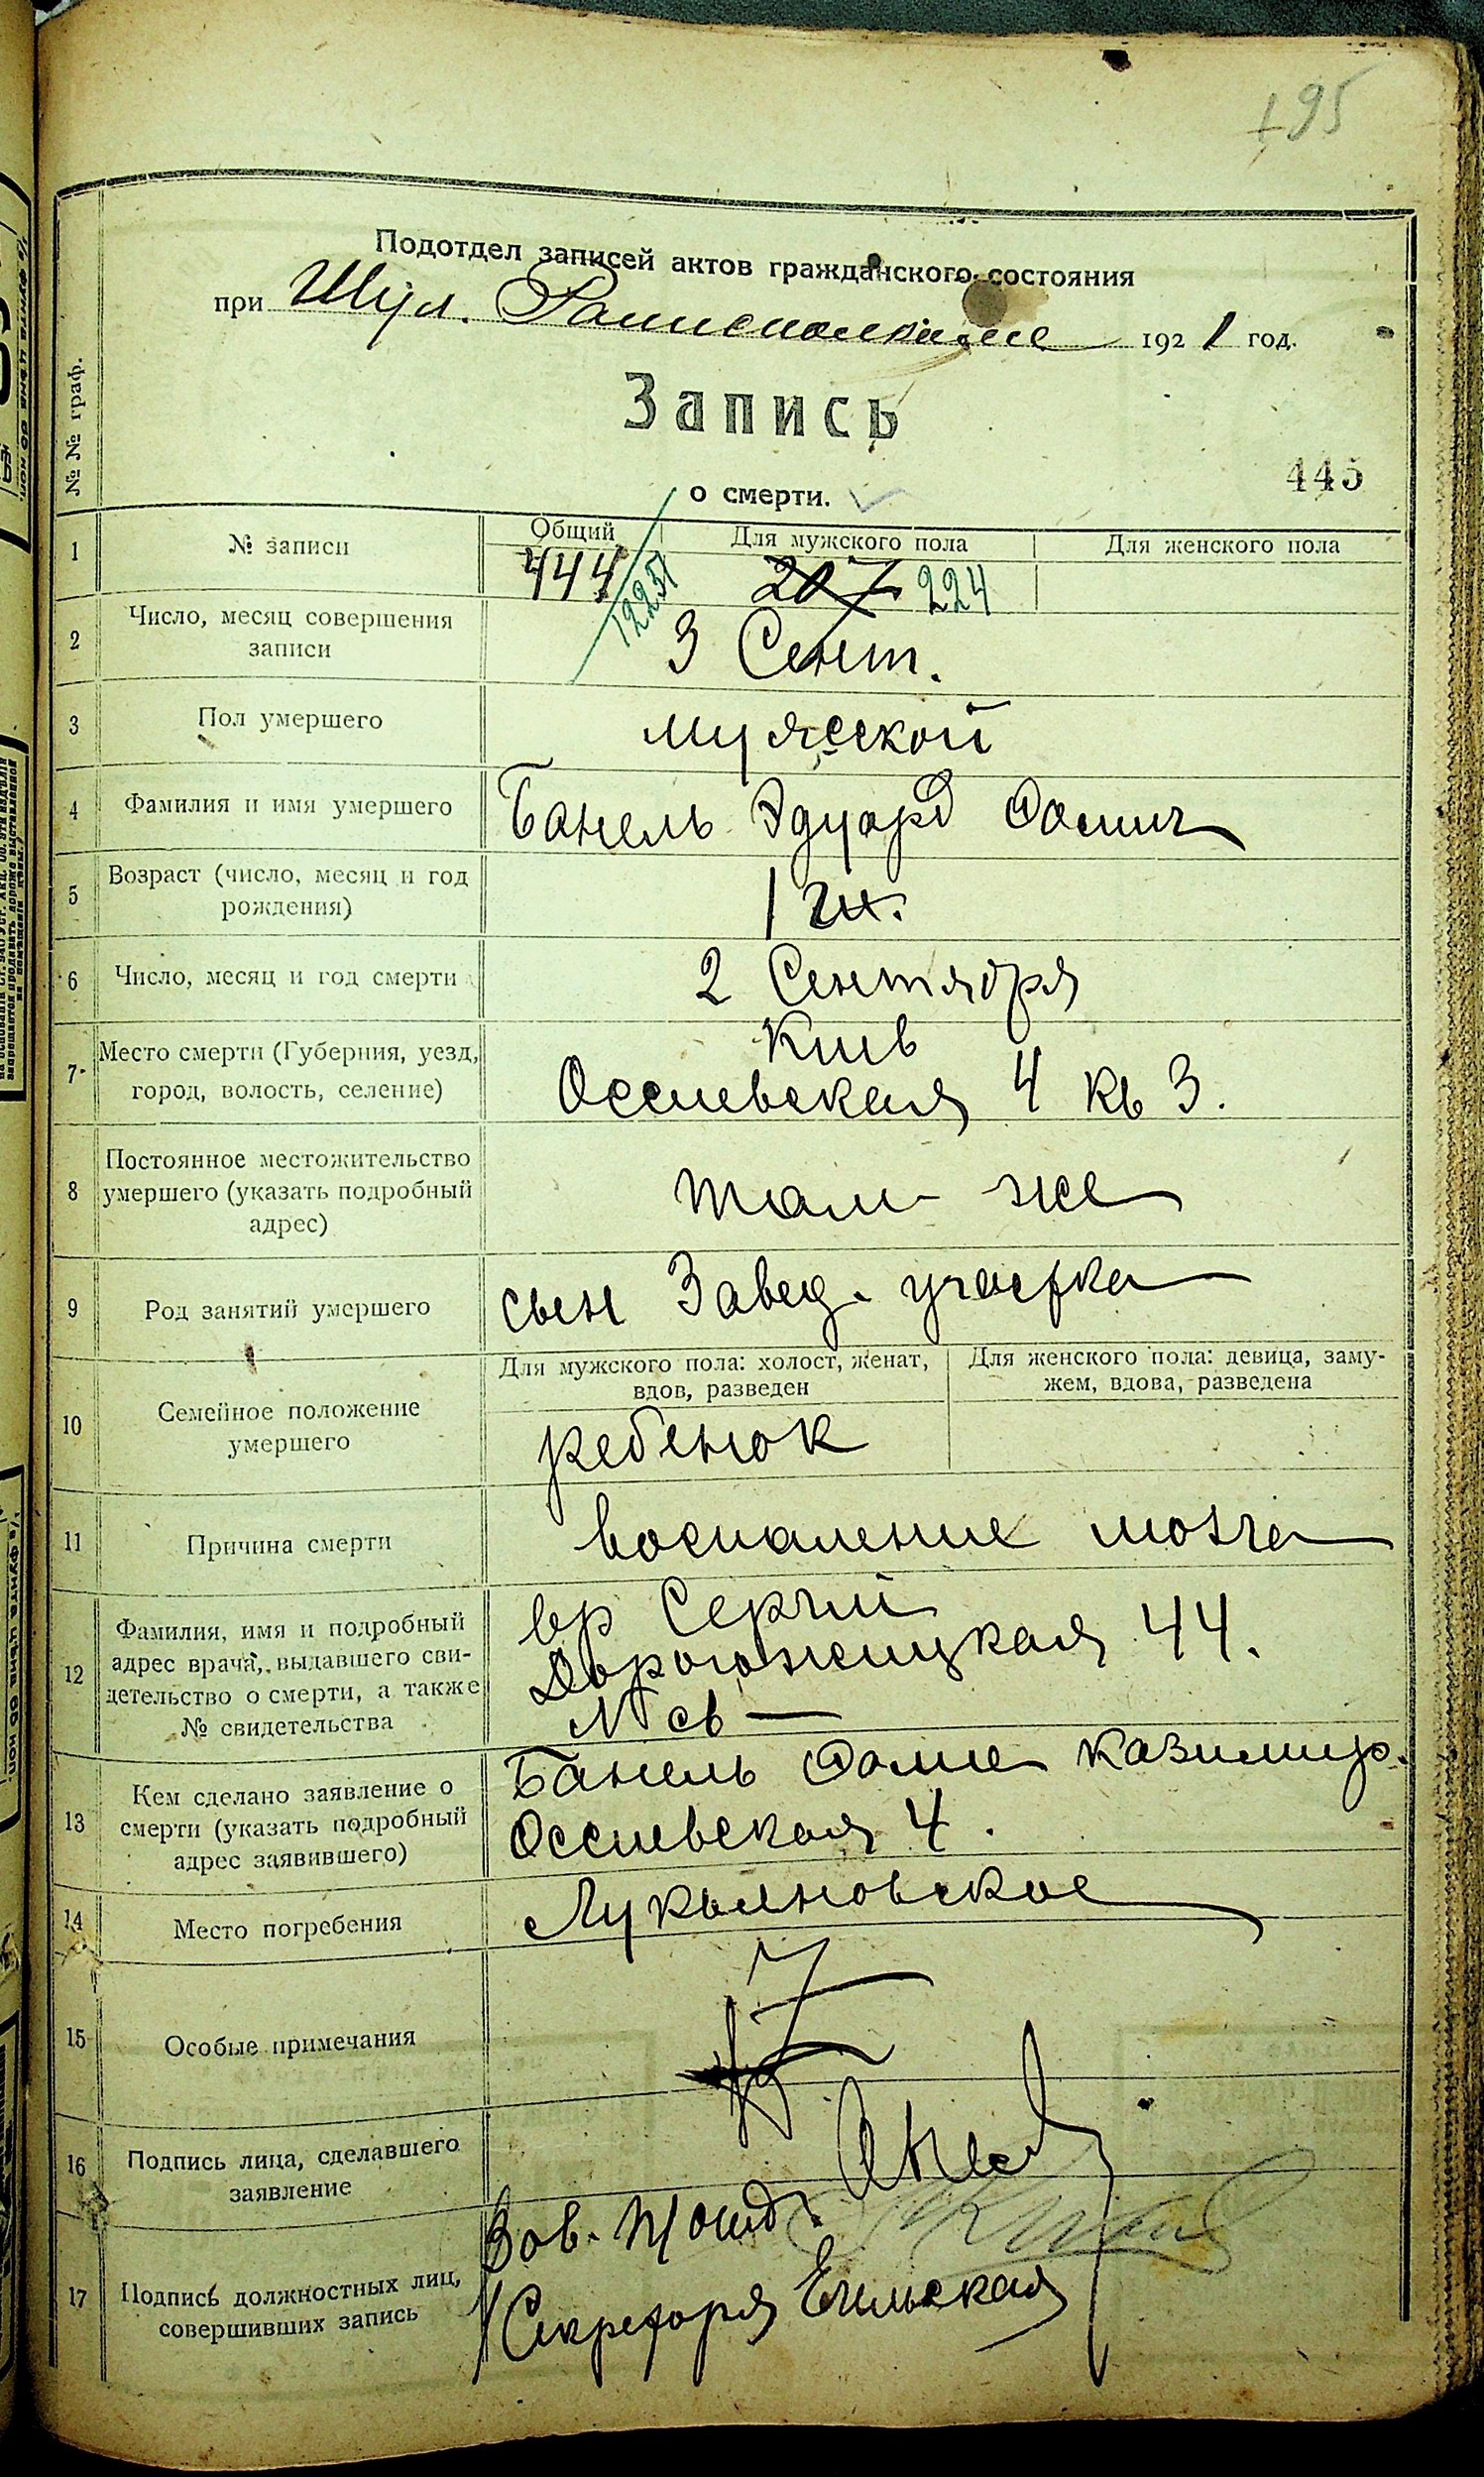 195
Подотдел записей актов гражданского состояния
при Шул. Раписполкоме 1921 год.
Запись
о смерти.
445
№ № граф.
1 № записи Общий Для мужского пола Для женского пола
444 12251 207 224
2 Число, месяц совершения записи
3 Сент.
3 Пол умершего мужеской
4 Фамилия и имя умершего Банель Эдуард Фомич
5 Возраст (число, месяц и год рождения)
1 г.
6 Число, месяц и год смерти 2 Сентября
7 Место смерти (Губерния, уезд, город, волость, селение)
Киев
Осиевская 4 кв 3.
8 Постоянное местожительство умершего (указать подробный адрес)
там же
9 Род занятий умершего сын Завед. участка
10 Семейное положение умершего
Для мужского пола: холост, женат, вдов, разведен
Для женского пола: девица, замужем, вдова, разведена
ребенок
11 Причина смерти воспаление мозга
12 Фамилия, имя и подробный адрес врача, выдавшего свидетельство о смерти, а также № свидетельства
вр Сергий
Дорогожицкая 44.
№ св —
13 Кем сделано заявление о смерти (указать подробный адрес заявившего)
Банель Фома Казимир.
Осиевская 4.
14 Место погребения Лукьяновское
15 Особые примечания
16 Подпись лица, сделавшего заявление
17 Подпись должностных лиц, совершивших запись
Зав.
Секретарь